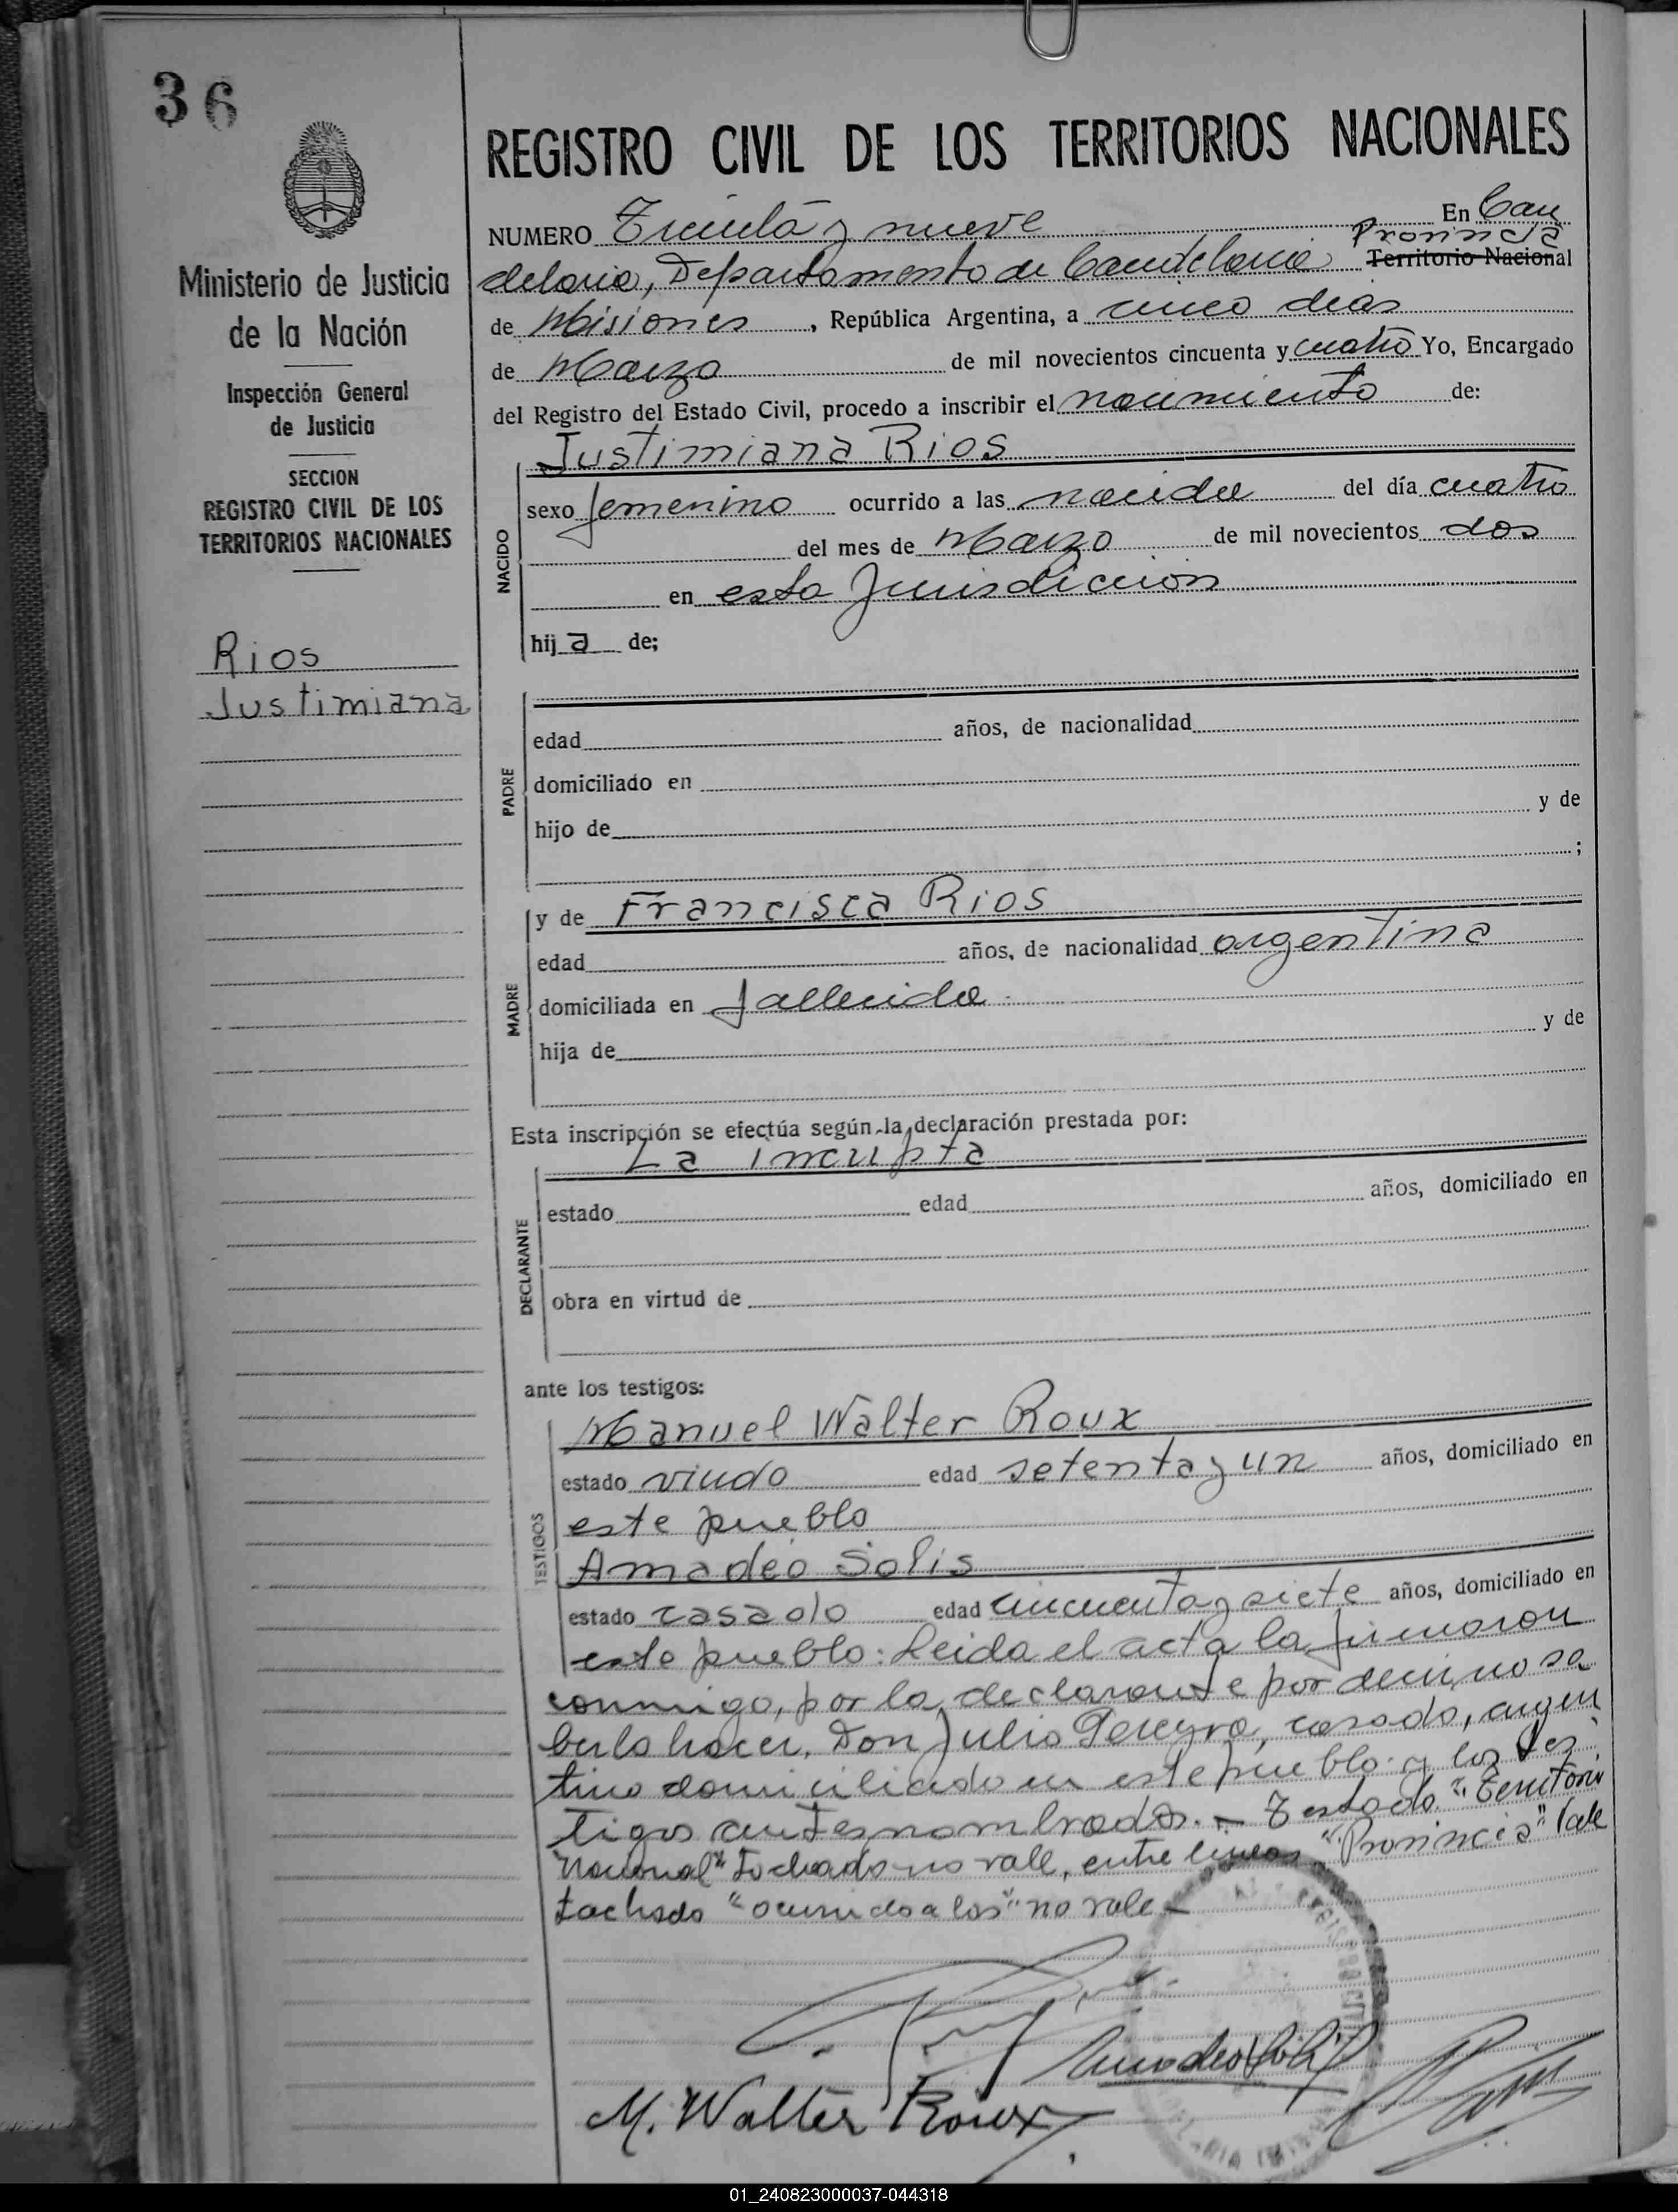 36
Ministerio de Justicia
de la Nación
Inspección General
de Justicia
SECCION
REGISTRO CIVIL DE LOS
TERRITORIOS NACIONALES
Rios
Justimiana
REGISTRO CIVIL DE LOS TERRITORIOS NACIONALES
NUMERO Treinta y nueve En Can
Provincia
delaria, Departamento de Candelaria Territorio Nacional
de Misiones, República Argentina, a cinco dias
de Marzo de mil novecientos cincuenta y cuatro Yo, Encargado
del Registro del Estado Civil, procedo a inscribir el nacimiento de:
Justimiana Rios
NACIDO
sexo femenino ocurrido a las nacida del día cuatro
del mes de Marzo de mil novecientos dos
en esta Jurisdiccion
hija de;
PADRE
edad años, de nacionalidad
domiciliado en
hijo de y de
;
MADRE
y de Francisca Rios
edad años, de nacionalidad argentina
domiciliada en fallecida
hija de y de
Esta inscripción se efectúa según la declaración prestada por:
La incripta
DECLARANTE
estado edad años, domiciliado en
obra en virtud de
ante los testigos:
TESTIGOS
Manuel Walter Roux
estado viudo edad setenta y un años, domiciliado en
este pueblo
Amadeo Solis
estado casado edad cincuenta y siete años, domiciliado en
este pueblo: Leida el acta la firmaron
conmigo, por la declarante por decir no sa
berlo hacer, Don Julio Pereyra, casado, argen
tino domiciliado en este pueblo y los tes
tigos antes nombrados. - Testado "Territorio
Nacional" Tachado no vale, entre lineas "Provincia" Vale
tachado "ocurrido a las" no vale -
Amadeo Solis
M. Walter Roux
01_240823000037-044318